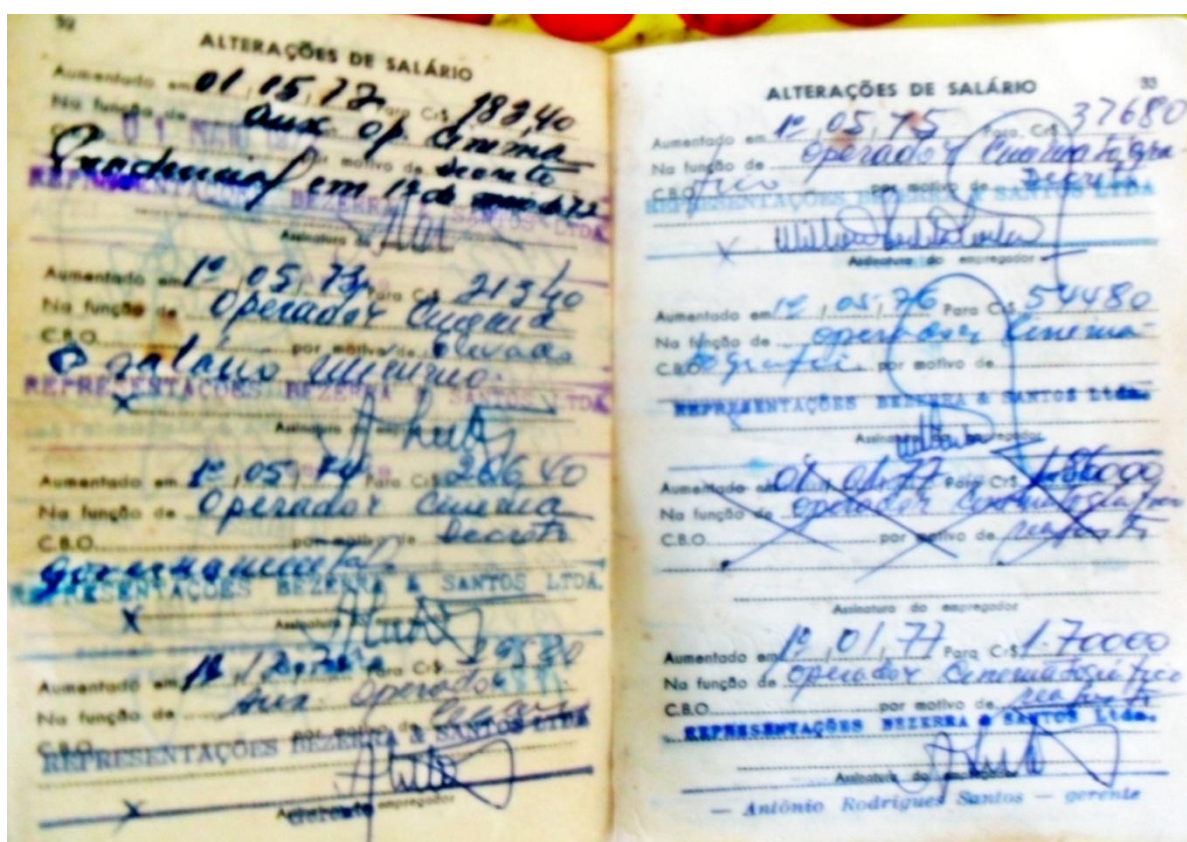 32
ALTERAÇÕES DE SALÁRIO
Aumentado em 01,05,72 Para Cr$ 183,40
Na função de Aux op. Cinema
por motivo de decreto
Presidencial em 1º de maio de 72
REPRESENTAÇÕES BEZERRA & SANTOS LTDA.
Assinatura do empregador
Aumentado em 1º,05,73 Para Cr$ 213,40
Na função de Operador Cinema
C.B.O. por motivo de elevado
o salário mínimo.
REPRESENTAÇÕES BEZERRA & SANTOS LTDA.
Assinatura do empregador
Aumentado em 1º,05,74 Para Cr$ 266,40
Na função de Operador Cinema
C.B.O. por motivo de decreto
governamental
REPRESENTAÇÕES BEZERRA & SANTOS LTDA.
Assinatura do empregador
Aumentado em 1º,12, Para Cr$
Na função de Aux. Operador
C.B.O. por motivo de
REPRESENTAÇÕES BEZERRA & SANTOS LTDA
Assinatura do empregador
Gerente
33
ALTERAÇÕES DE SALÁRIO
Aumentado em 1º,05,75 Para Cr$ 37680
Na função de operador Cinematográ-
C.B.O. fico por motivo de Decreto
REPRESENTAÇÕES BEZERRA & SANTOS LTDA
Assinatura do empregador
Aumentado em 1º,05,76 Para Cr$ 54480
Na função de operador Cinema-
C.B.O. tografi. por motivo de
REPRESENTAÇÕES BEZERRA & SANTOS Ltda.
Assinatura do empregador
Aumentado em 01,01,77 Para Cr$
Na função de operador Cinematográfico
C.B.O. por motivo de reajuste
Assinatura do empregador
Aumentado em 1º,01,77 Para Cr$ 1.70000
Na função de Operador Cinematográfico
C.B.O. por motivo de reajuste
REPRESENTAÇÕES BEZERRA & SANTOS Ltda.
Assinatura do empregador
— Antônio Rodrigues Santos — gerente